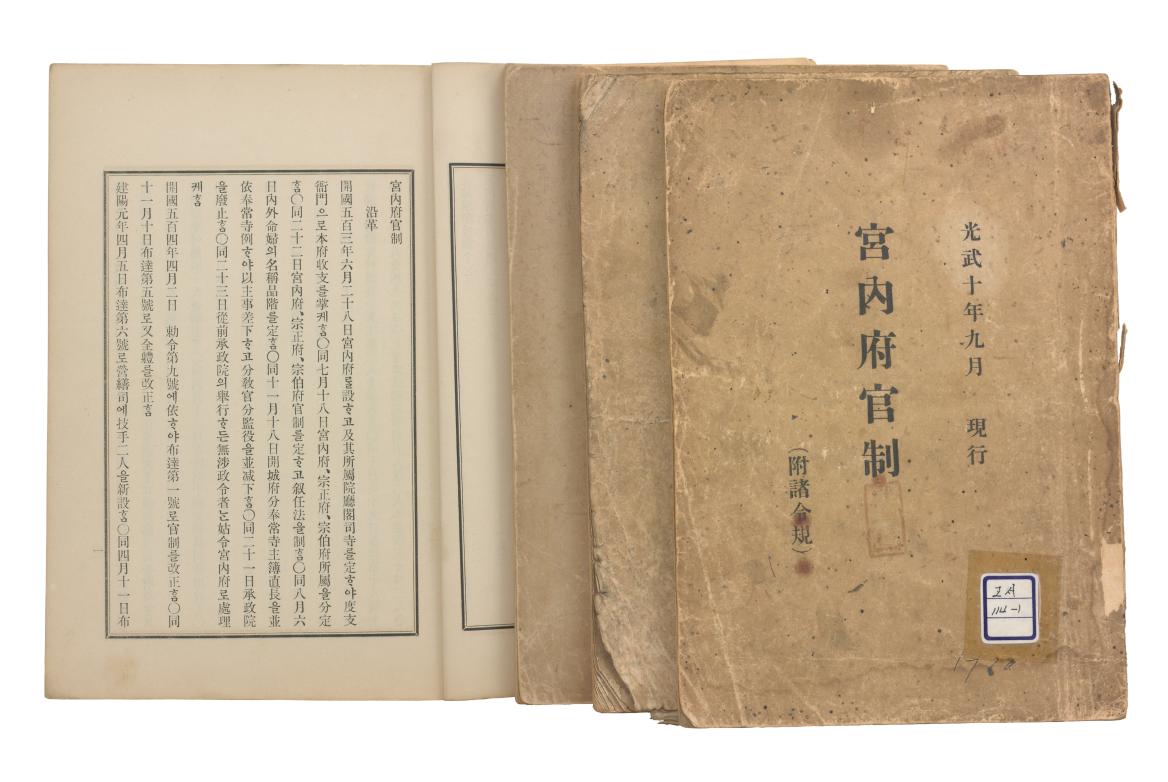 光武十年九月 現行
宮內府官制
(附諸令規)
고서
114-1
宮內府官制
沿革
開國五百三年六月二十八日宮內府를設ᄒᆞ고及其所屬院廳閣司寺를定ᄒᆞ야度支
衙門으로本府收支를掌케ᄒᆞᆷ○同七月十八日宮內府、宗正府、宗伯府所屬을分定
ᄒᆞᆷ○同二十二日宮內府、宗正府、宗伯府官制를定ᄒᆞ고叙任法을制ᄒᆞᆷ○同八月六
日內外命婦의名稱品階를定ᄒᆞᆷ○同十一月十八日開城府分奉常寺主簿直長을並
依奉常寺例ᄒᆞ야以主事差下ᄒᆞ고分敎官分監役을並減下ᄒᆞᆷ○同二十一日承政院
을廢止ᄒᆞᆷ○同二十三日從前承政院의擧行ᄒᆞ든無涉政令者ᄂᆞᆫ姑令宮內府로處理
케ᄒᆞᆷ
開國五百四年四月二日 勅令第九號에依ᄒᆞ야布達第一號로官制를改正ᄒᆞᆷ○同
十一月十日布達第五號로又全體를改正ᄒᆞᆷ
建陽元年四月五日布達第六號로營繕司에技手二人을新設ᄒᆞᆷ○同四月十一日布
一